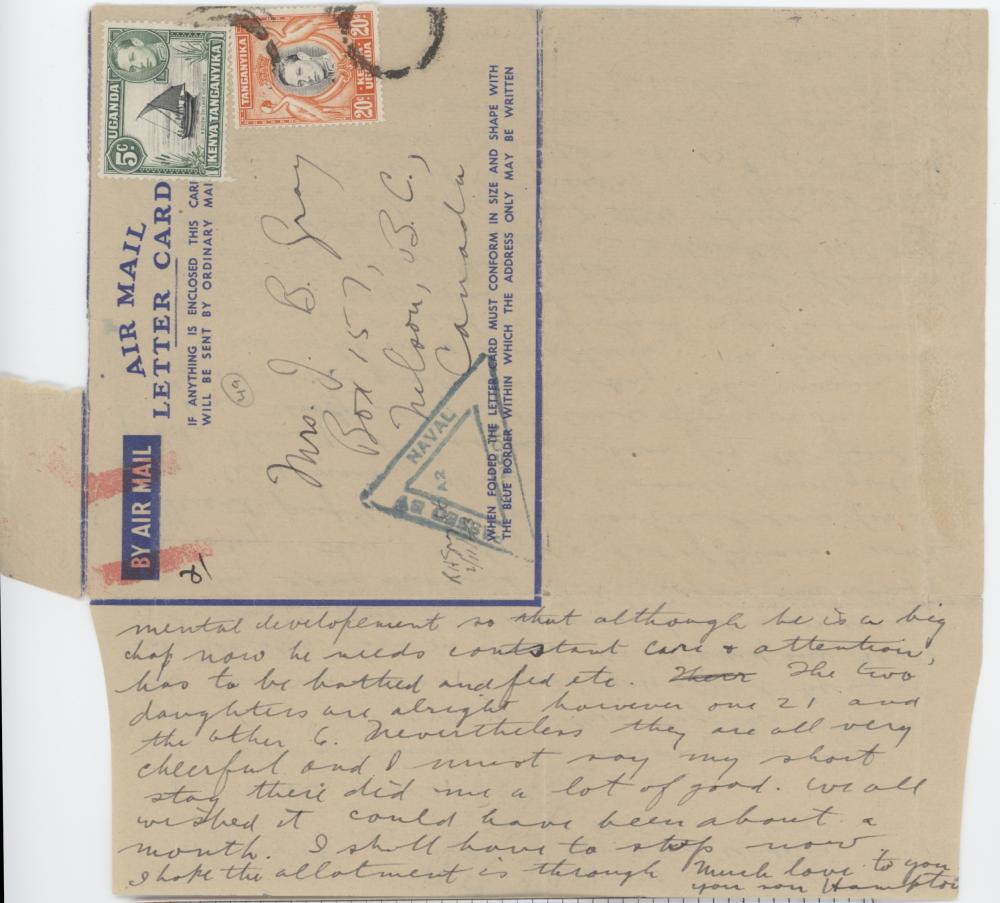 UGANDA
KENYA TANGANYIKA
5c
TANGANYIKA
KENYA
UGANDA
20c
20c
AIR MAIL
LETTER CARD
IF ANYTHING IS ENCLOSED THIS CARD
WILL BE SENT BY ORDINARY MAIL
BY AIR MAIL
2/
49
Mrs. J. B. Gray
Box 157,
Nelson, B.C.,
Canada
NAVAL
A2
2/11
WHEN FOLDED THE LETTER CARD MUST CONFORM IN SIZE AND SHAPE WITH
THE BLUE BORDER WITHIN WHICH THE ADDRESS ONLY MAY BE WRITTEN
mental developement so that although he is a big
chap now he needs contstant care & attention,
has to be bathed and fed etc. The two
daughters are alright however one 21 and
the other 6. Nevertheless they are all very
cheerful and I must say my short
stay there did me a lot of good. we all
wished it could have been about a
month. I shall have to stop now.
I hope the allotment is through Much love to you
your son Hampton